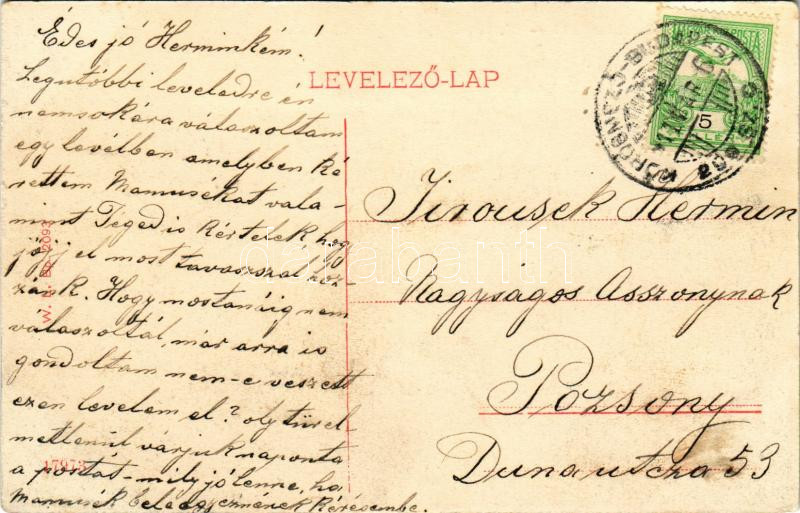 Édes jó Herminkém!
Legutóbbi leveledre én
nemsokára válaszoltam
egy levélben amelyben ké
rettem Mamusékat vala-
mint Téged is kértelek, hogy
jöjj el most tavaszszal hoz-
zánk. Hogy mostanáig nem
válaszoltál, már arra is
gondoltam nem-e veszett
ezen levelem el? oly türel
metlenül várjuk naponta
a postát - mily jó lenne, ha
Mamusék beleegyeznének kérésembe.
LEVELEZŐ-LAP
KŐRÖSMEZŐ-BUDAPEST
5
Jirousek Hermin
Nagyságos Asszonynak
Pozsony
Duna utcza 53
17973
darabanth